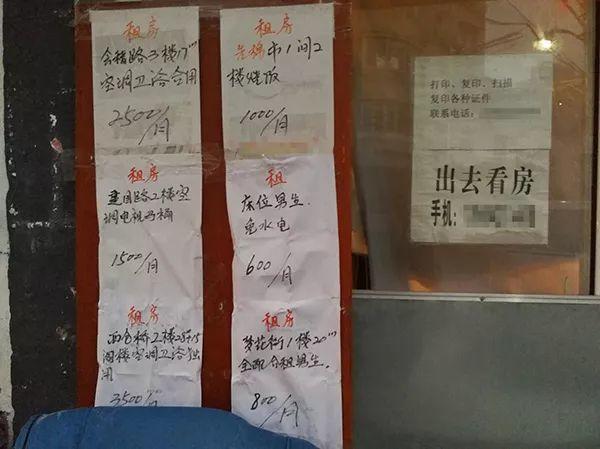 租房
会稽路3楼17m²
空调卫浴合用
2500/月
租房
建国路2楼空
调电视马桶
1500/月
租房
西仓桥2楼28+15
阁楼空调卫浴独
用
3500/月
租房
中1间2
楼烧饭
1000/月
租
床位男生.
免水电
600/月
租房
梦花街1楼20m²
全配合租男生.
800/月
打印、复印、扫描
复印各种证件
联系电话：
出去看房
手机：